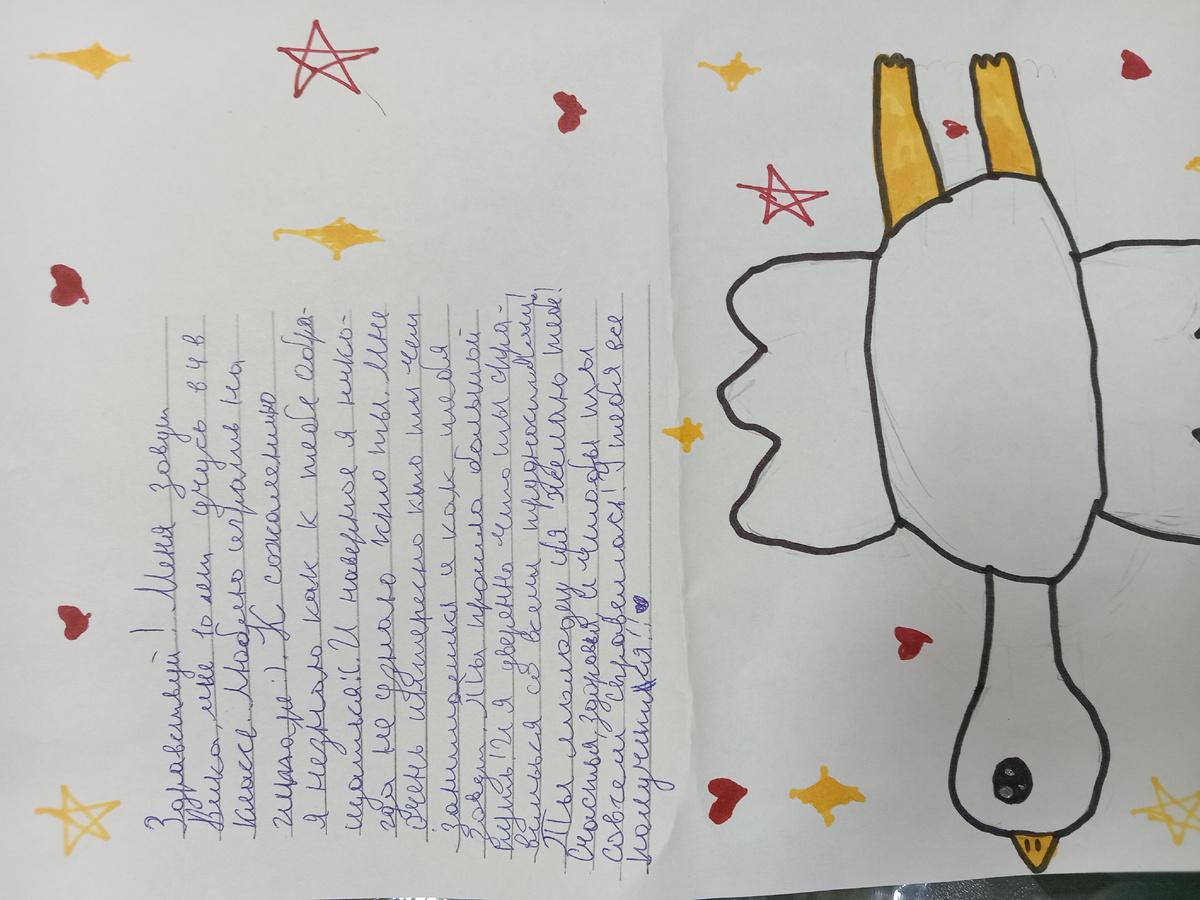 Здравствуй! Меня зовут
Вика, мне 10 лет учусь в 4 в
классе. Люблю играть на
гитаре:). К сожалению
я незнаю как к тебе обра-
щаться:(. И наверное я нико-
гда не узнаю кто ты. Мне
очень интересно кто ты чем
занимаешься и как тебя
зовут. Ты прошло большой
путь! И я уверенна что ты спра-
вишься со всеми трудностями!
Ты молодец! Я желаю тебе!
Счастья, здоровья и чтобы ты
совсем справилась! У тебя все
получиться!!